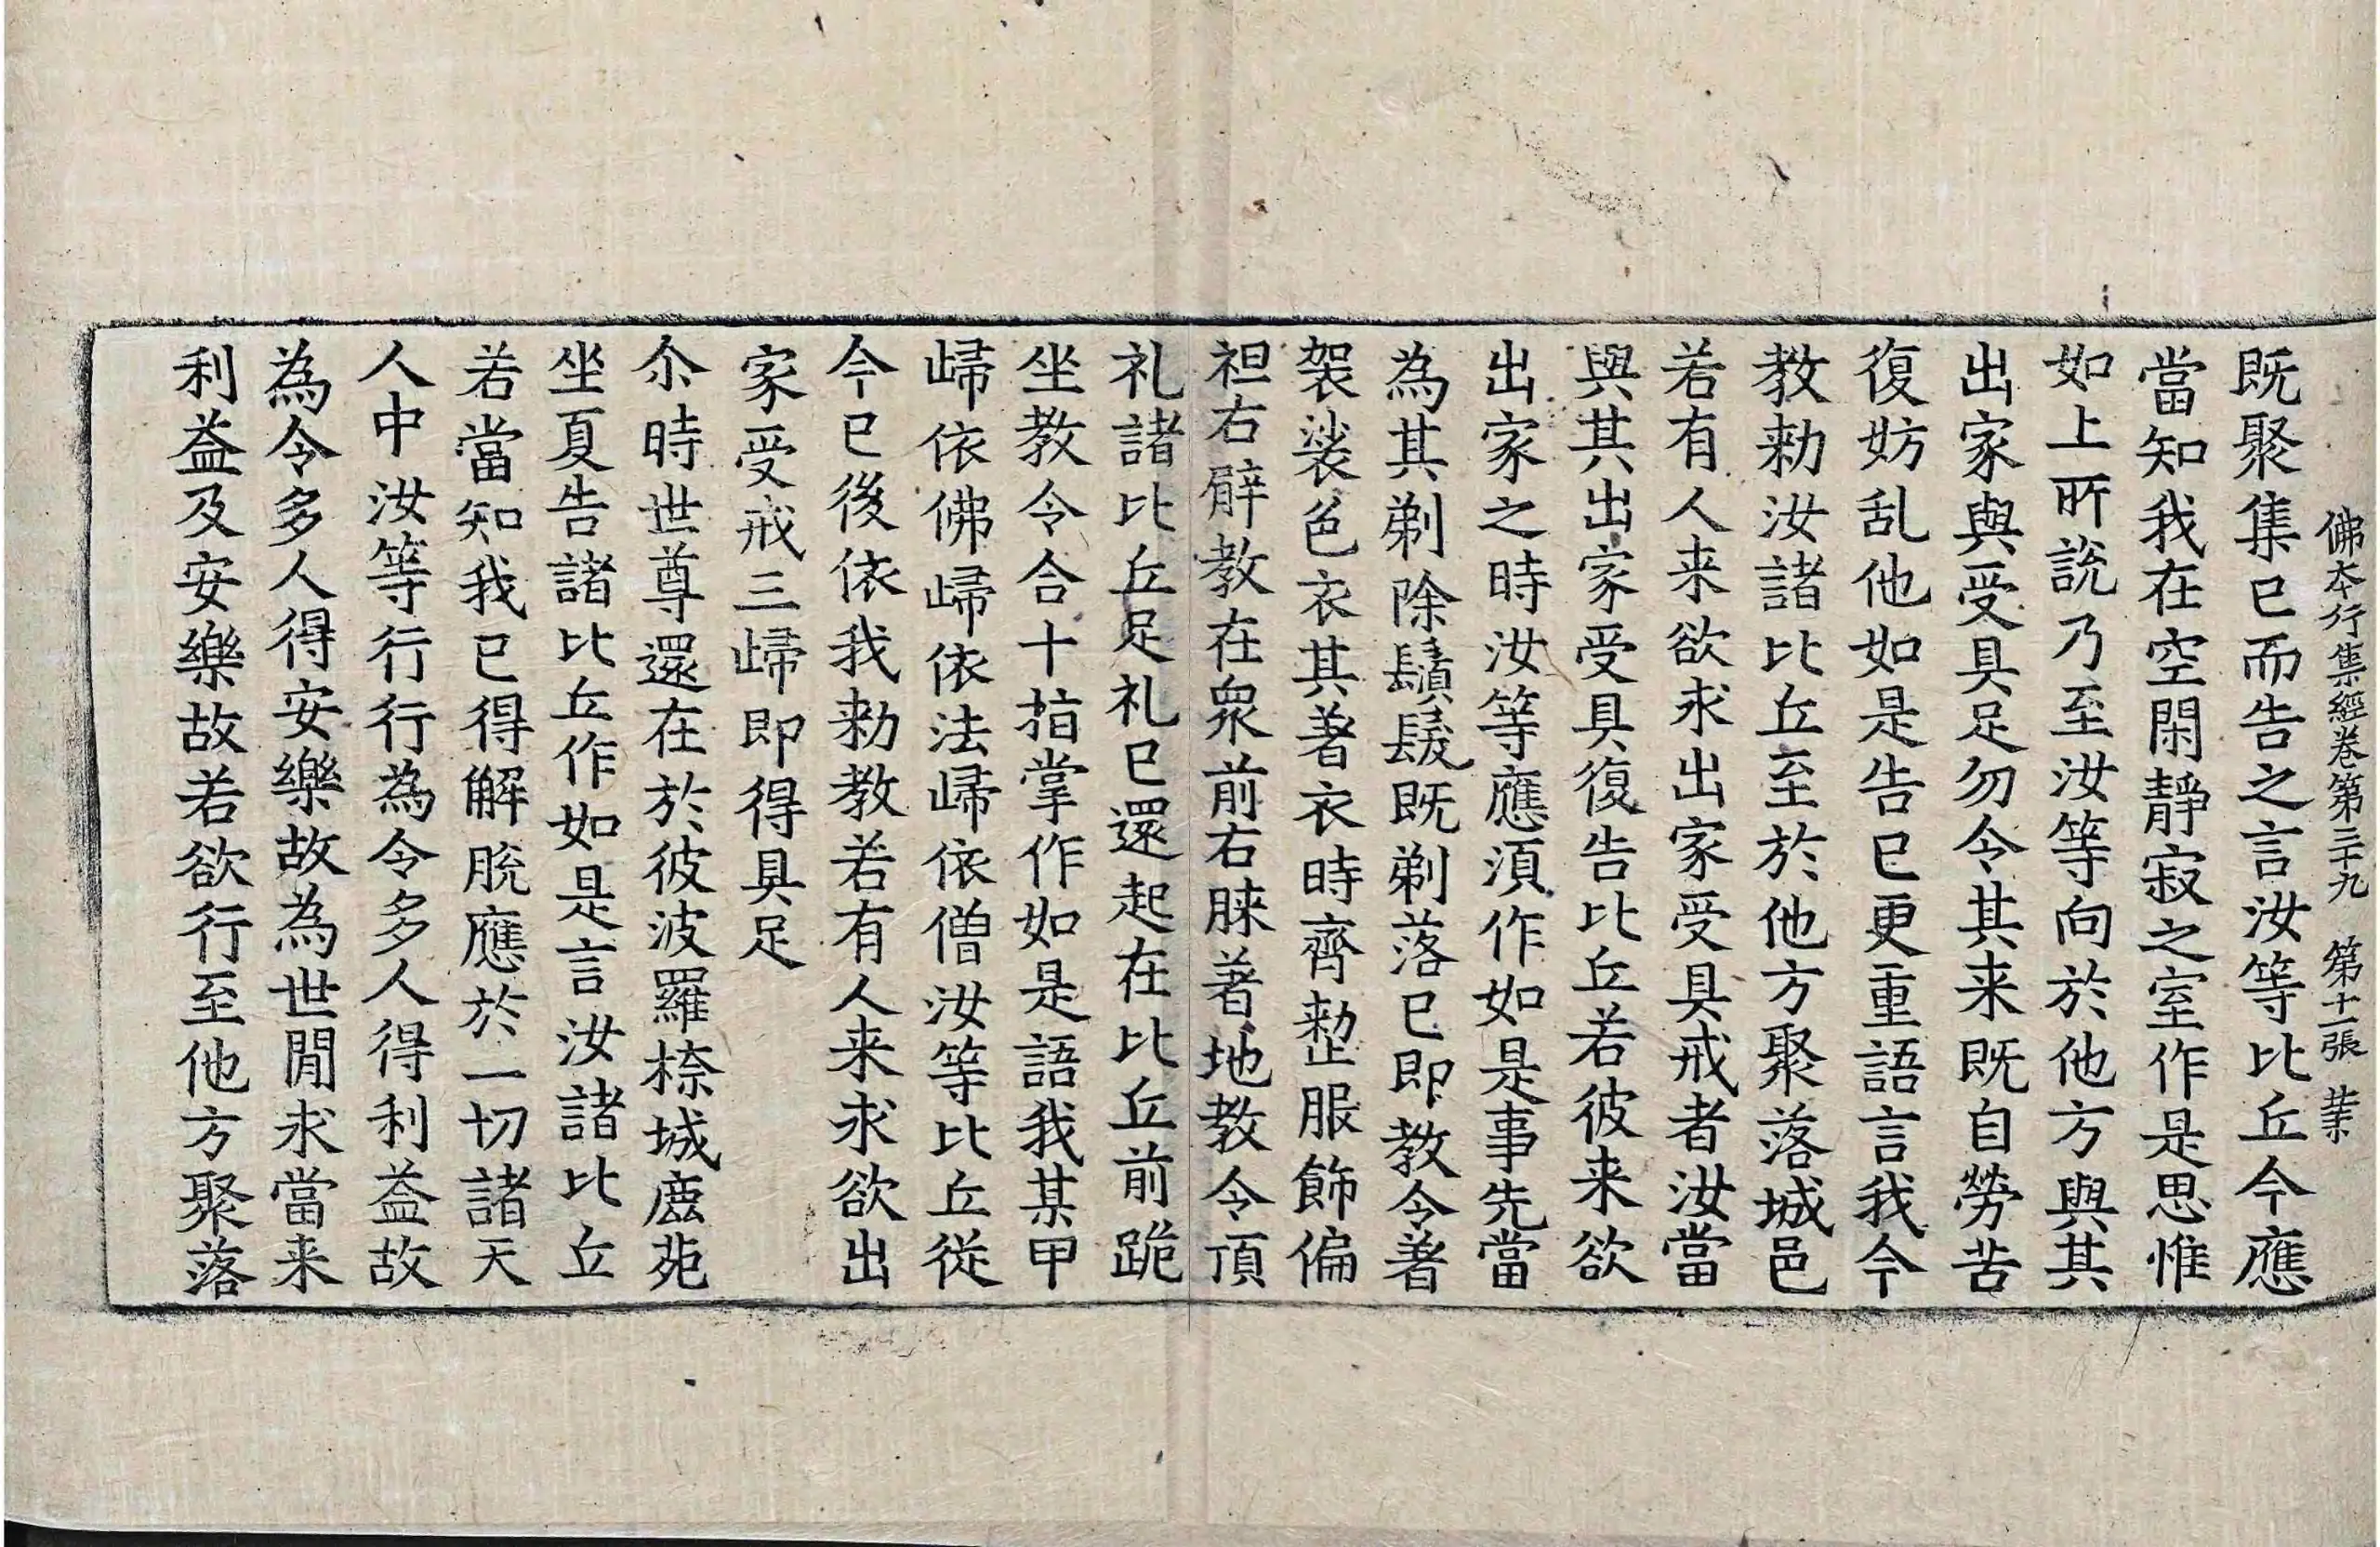 佛本行集經卷第三十九　第十一張　業
既聚集已而告之言汝等比丘今應
當知我在空閑靜寂之室作是思惟
如上所說乃至汝等向於他方與其
出家與受具足勿令其来既自勞苦
復妨乱他如是告已更重語言我今
教勑汝諸比丘至於他方聚落城邑
若有人来欲求出家受具戒者汝當
與其出家受具復告比丘若彼来欲
出家之時汝等應湏作如是事先當
為其剃除鬚髮既剃落已即教令著
袈裟色衣其著衣時齊整服飾偏
袒右臂教在衆前右膝著地教令頂
礼諸比丘足礼已還起在比丘前跪
坐教令合十指掌作如是語我某甲
歸依佛歸依法歸依僧汝等比丘從
今已後依我勑教若有人来求欲出
家受戒三歸即得具足
尒時世尊還在於彼波羅㮈城鹿苑
坐夏告諸比丘作如是言汝諸比丘
若當知我已得解脫應於一切諸天
人中汝等行行為令多人得利益故
為令多人得安樂故為世間求當来
利益及安樂故若欲行至他方聚落